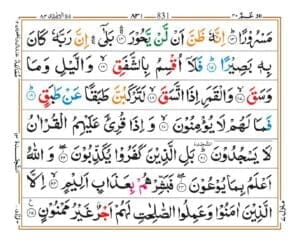 ٨٣١ 831
مَسْرُوْرًا ۝١٣ اِنَّهٗ ظَنَّ اَنْ لَّنْ يَّحُوْرَ ۝١٤ بَلٰٓى اِنَّ رَبَّهٗ كَانَ
بِهٖ بَصِيْرًا ۝١٥ فَلَآ اُقْسِمُ بِالشَّفَقِ ۝١٦ وَالَّيْلِ وَمَا
وَسَقَ ۝١٧ وَالْقَمَرِ اِذَا اتَّسَقَ ۝١٨ لَتَرْكَبُنَّ طَبَقًا عَنْ طَبَقٍ ۝١٩
فَمَا لَهُمْ لَا يُؤْمِنُوْنَ ۝٢٠ وَاِذَا قُرِئَ عَلَيْهِمُ الْقُرْاٰنُ
لَا يَسْجُدُوْنَ ۝٢١ بَلِ الَّذِيْنَ كَفَرُوْا يُكَذِّبُوْنَ ۝٢٢ وَاللّٰهُ
اَعْلَمُ بِمَا يُوْعُوْنَ ۝٢٣ فَبَشِّرْهُمْ بِعَذَابٍ اَلِيْمٍ ۝٢٤ اِلَّا
الَّذِيْنَ اٰمَنُوْا وَعَمِلُوا الصّٰلِحٰتِ لَهُمْ اَجْرٌ غَيْرُ مَمْنُوْنٍ ۝٢٥